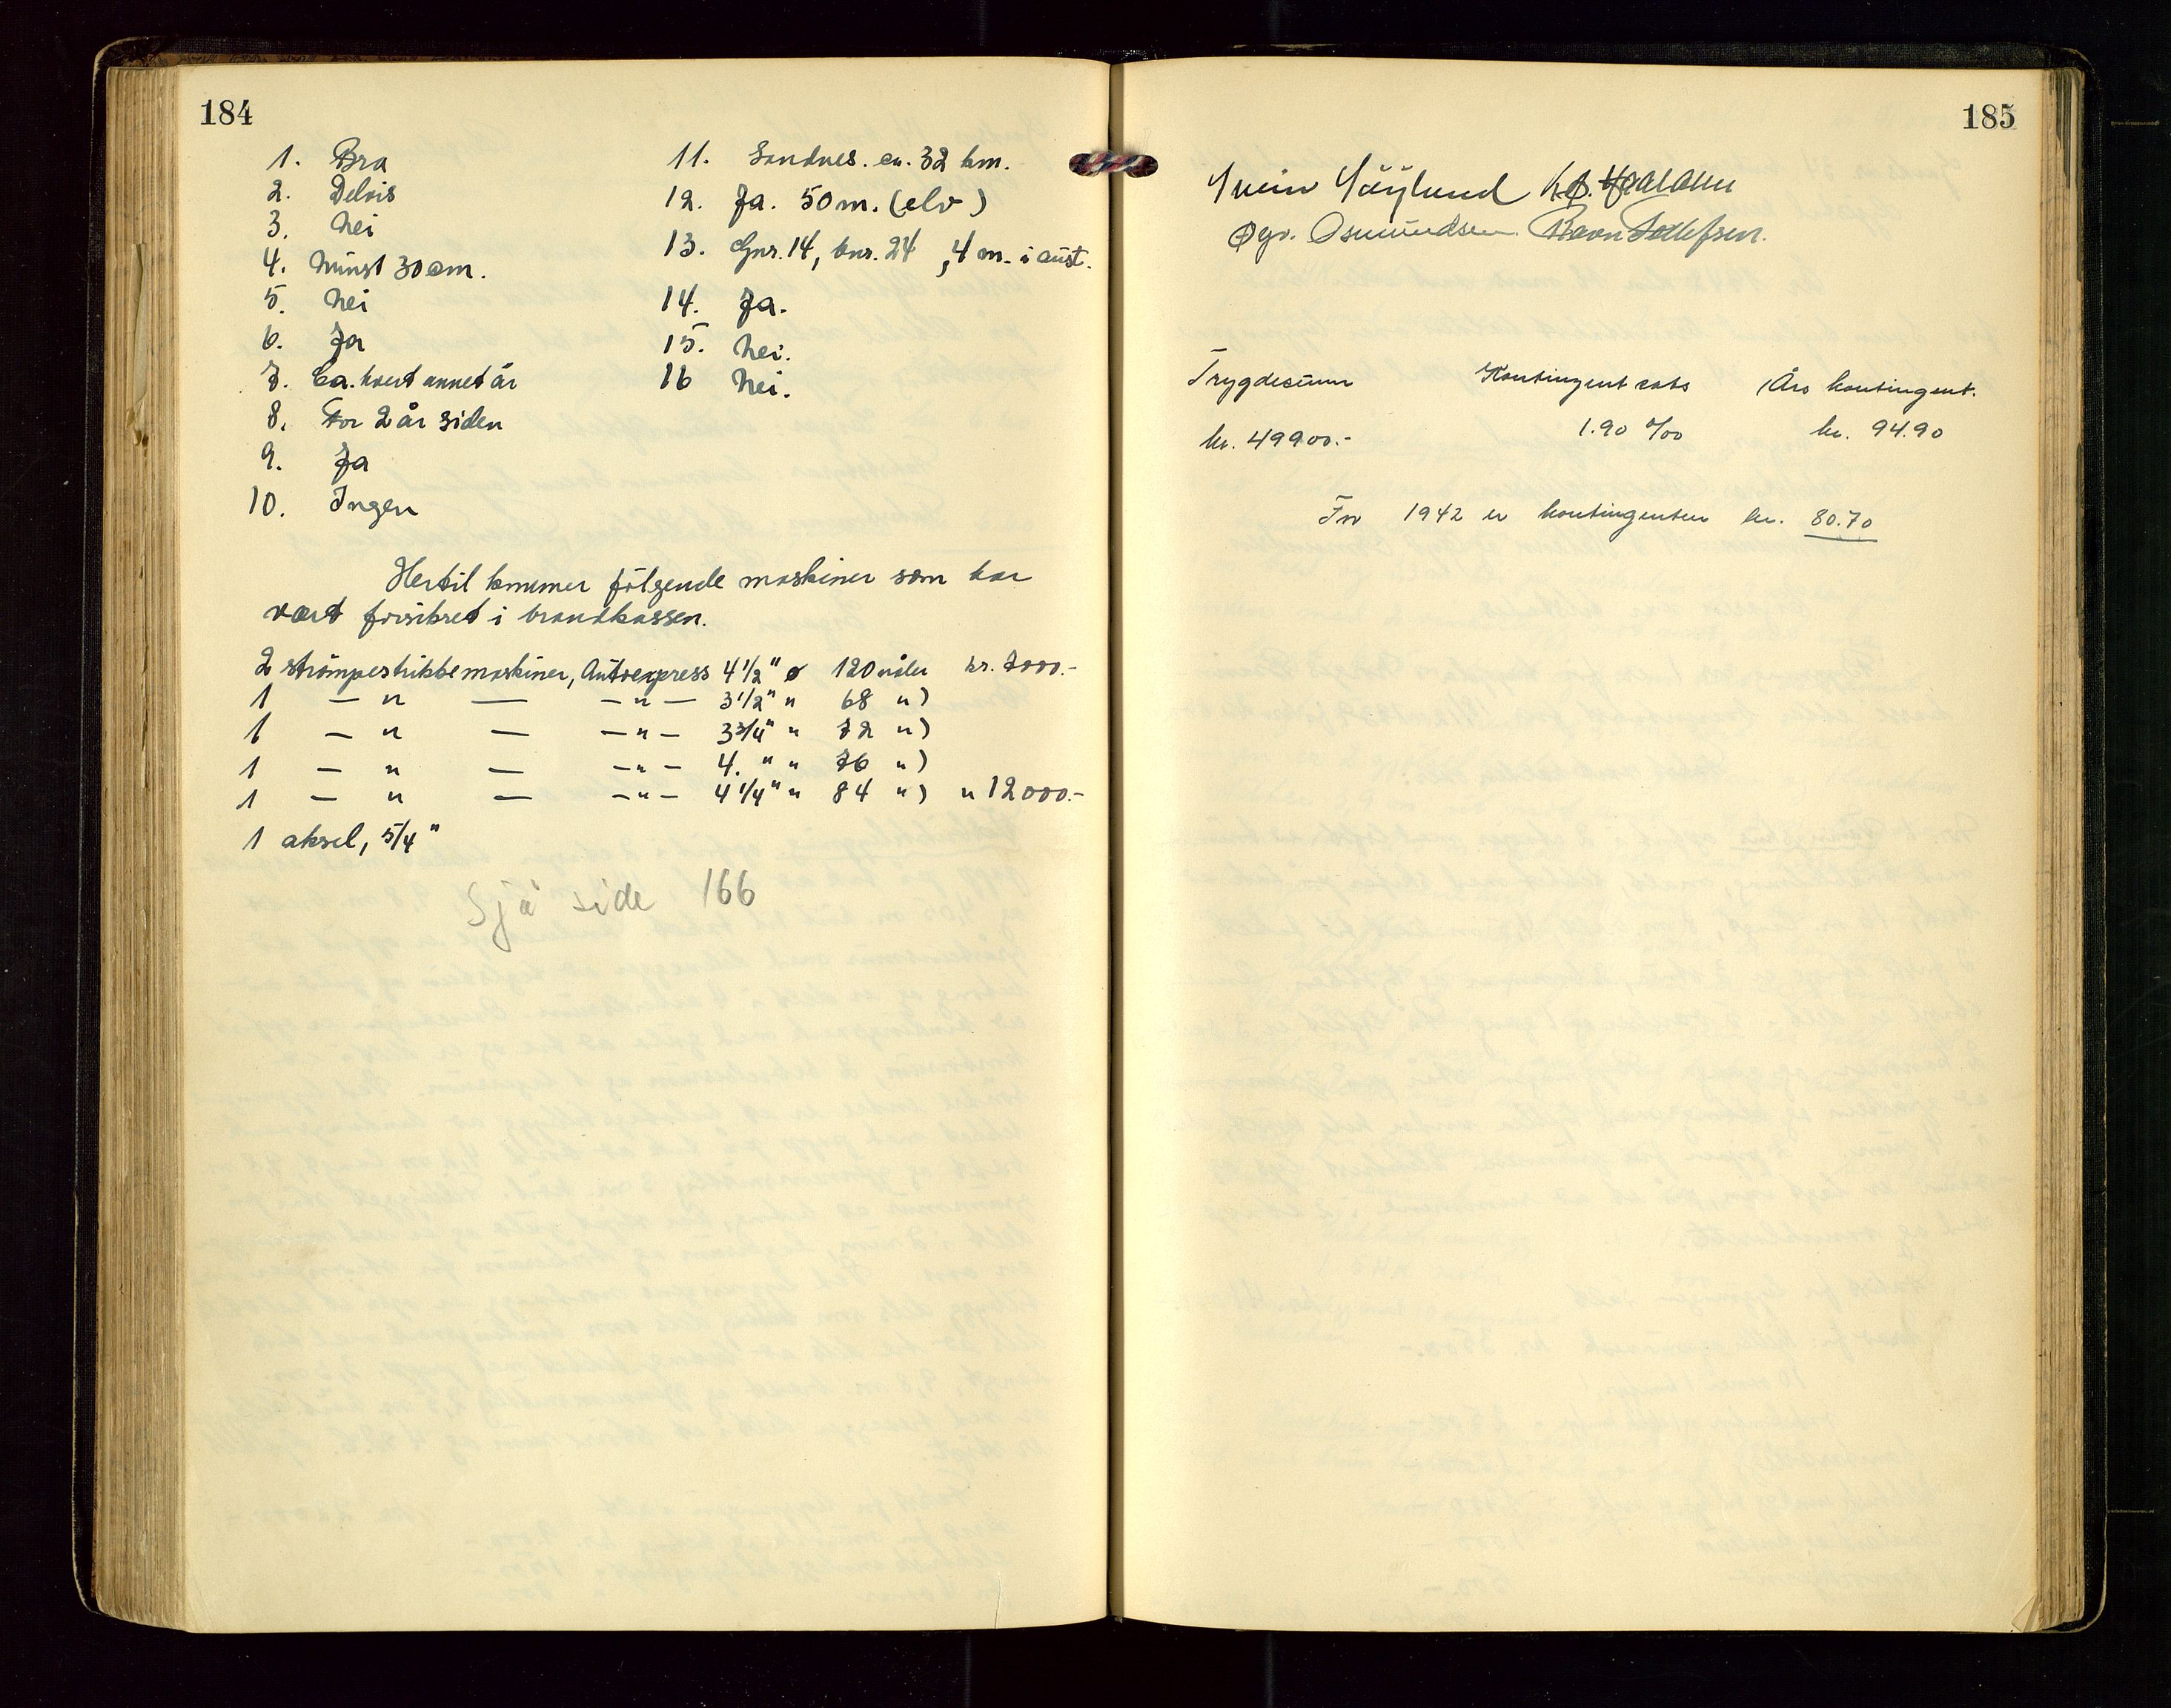 184
1. Bra
2. Delvis
3. Nei
4. Minst 30 cm.
5. Nei
6. Ja
7. Ca. hvert annet år
8. For 2 år siden
9. Ja
10. Ingen
11. Sandnes. ca. 32 km.
12. Ja. 50 m. (elv)
13. Gnr. 14, bnr. 24, 4 m. i aust.
14. Ja.
15. Nei.
16 Nei.
Hertil kommer følgende maskiner som har
vært forsikret i brandkassen.
2 strømpestrikkemaskiner, Autoexpress 4 1/2" ø 120 nåler kr. 7000.-
1 — " — — " — 3 1/2" " 68 ")
1 — " — — " — 3 3/4" " 72 ")
1 — " — — " — 4. " " 76 ")
1 — " — — " — 4 1/4" " 84 ") " 12000.-
1 aksel, 5/4"
Sjå side 166
185
Svein Høylund
Osmundsen Tollefsen.
Trygdesum Kontingent sats Års kontingent.
kr. 49900.- 1.90 ‰ kr. 94.90
For 1942 er kontingenten kr. 80.70